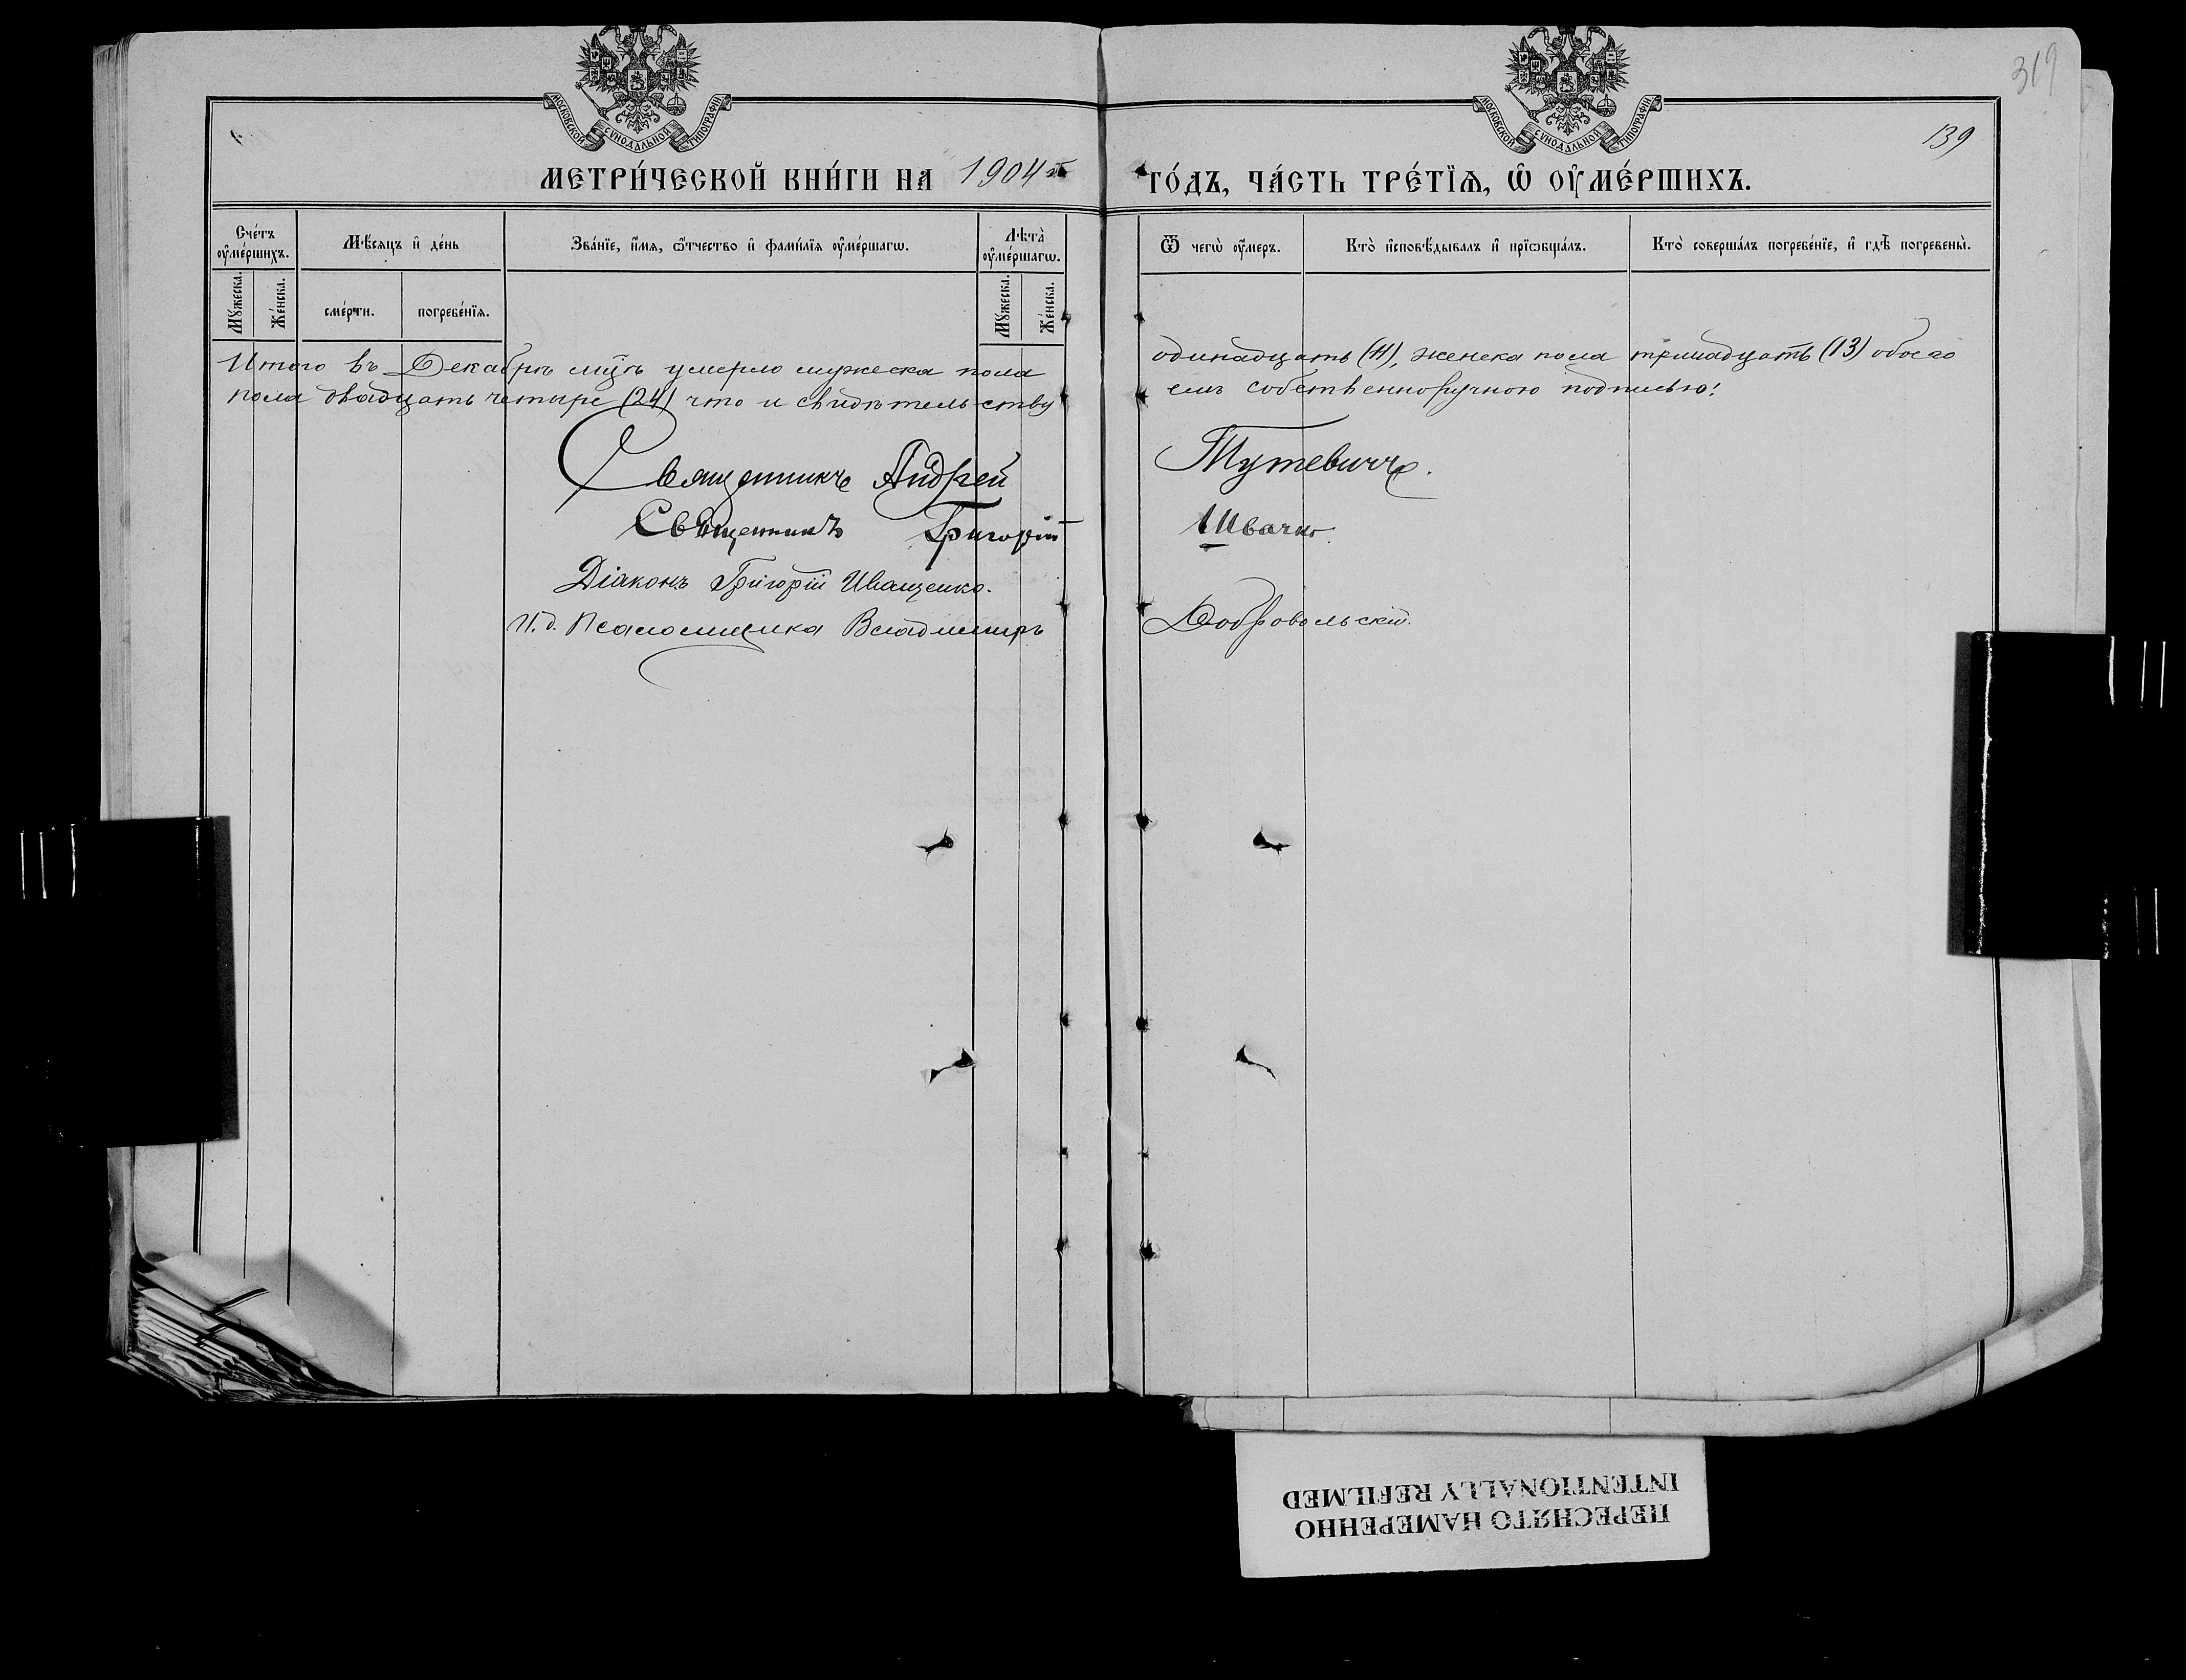 МОСКОВСКОЙ СѴНОДАЛЬНОЙ ТИПОГРАФІИ
МОСКОВСКОЙ СѴНОДАЛЬНОЙ ТИПОГРАФІИ
319
139
МЕТРИ́ЧЕСКОЙ КНИ́ГИ НА 1904й ГО́ДЪ, ЧА́СТЬ ТРЕ́ТІѦ, Ѡ ОУ҆МЕ́РШИХЪ.
Сче́тъ оу҆ме́ршихъ.
Мꙋ́жеска.
Же́нска.
Мѣ́сяцъ и҆ де́нь
сме́рти.
погребе́нїя.
Зва́нїе, и҆́мя, ѻ҆́тчество и҆ фами́лїя оу҆ме́ршагѡ.
Лѣта̀ оу҆ме́ршагѡ.
Мꙋ́жеска.
Же́нска.
Ѿ чегѡ̀ оу҆́меръ.
Кто̀ и҆сповѣ́дывалъ и҆ прїѡбща́лъ.
Кто̀ соверша́лъ погребе́нїе, и҆ гдѣ̀ погребены̀.
Итого въ Декабрѣ мцѣ умерло мужеска пола одинадцать (11), женска пола тринадцать (13) обоего
пола двадцать четыре (24) что и свидѣтельствуемъ собственноручною подписью:
Священникъ Андрей Тутевичъ.
Священникъ Григорій Швачко.
Діаконъ Григорій Иващенко.
И. д. Псаломщика Владимиръ Добровольскій.
ПЕРЕСНЯТО НАМЕРЕННО
INTENTIONALLY REFILMED